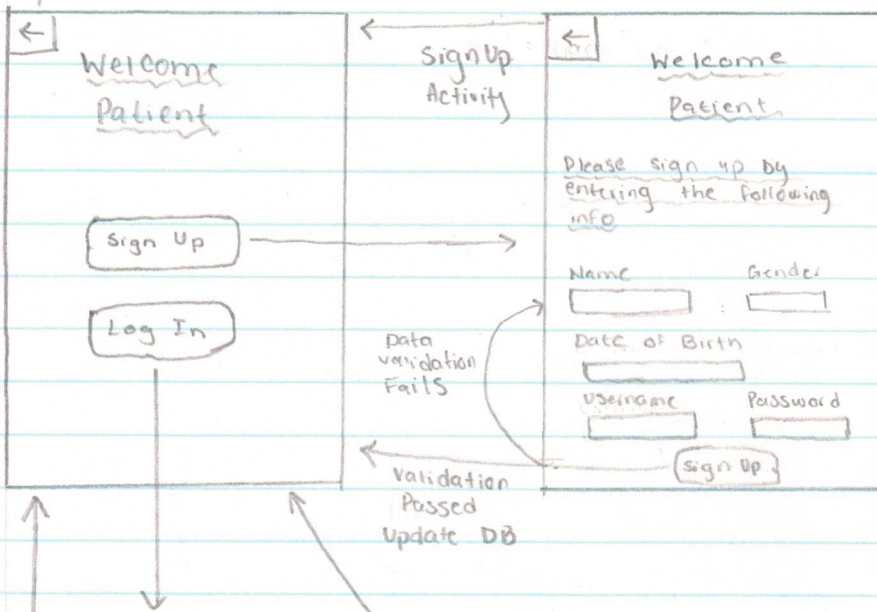 Welcome
Patient
Sign Up
Log In
Sign Up
Activity
Data
validation
Fails
Validation
Passed
Update DB
Welcome
Patient
Please sign up by
entering the following
info
Name Gender
Date of Birth
Username Password
Sign Up